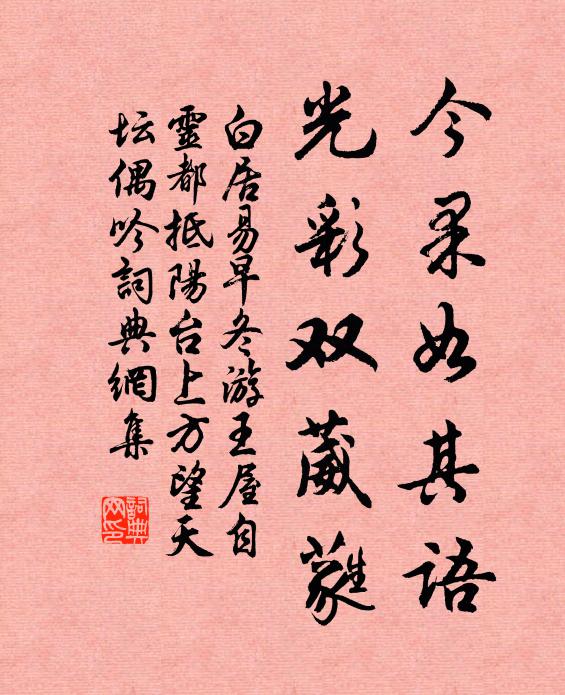 今果如其語
光彩双葳蕤
白居易早冬游王屋自
靈都抵陽台上方望天
坛偶吟詞典網集
詞典
网印